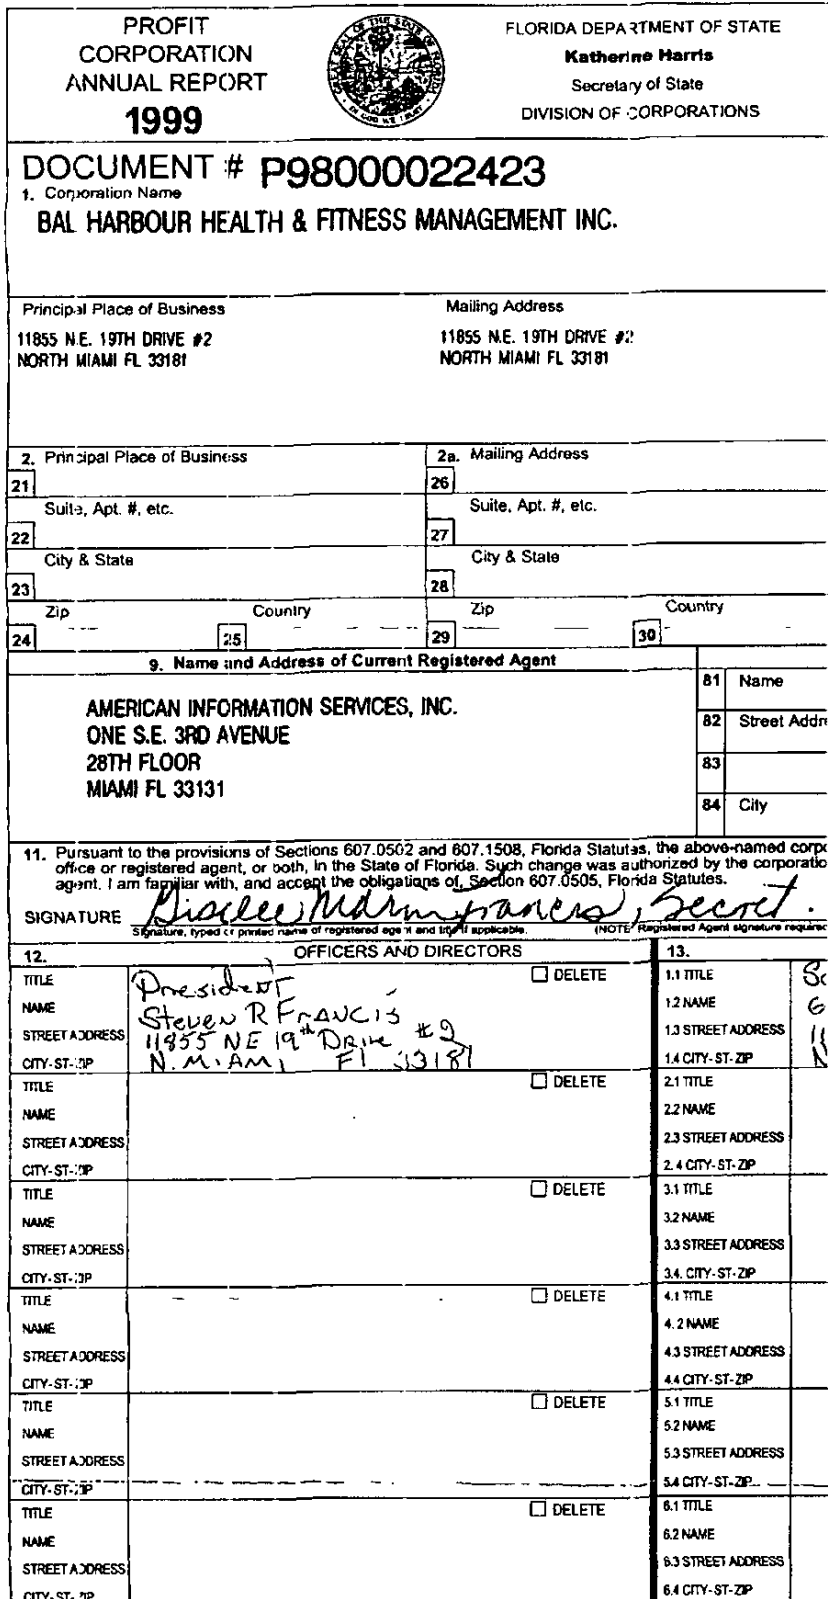 PROFIT
CORPORATION
ANNUAL REPORT
1999
FLORIDA DEPARTMENT OF STATE
Katherine Harris
Secretary of State
DIVISION OF CORPORATIONS
DOCUMENT # P98000022423
1. Corporation Name
BAL HARBOUR HEALTH & FITNESS MANAGEMENT INC.
Principal Place of Business
11855 N.E. 19TH DRIVE #2
NORTH MIAMI FL 33181
Mailing Address
11855 N.E. 19TH DRIVE #2
NORTH MIAMI FL 33181
2. Principal Place of Business
2a. Mailing Address
21
26
Suite, Apt. #, etc.
Suite, Apt. #, etc.
22
27
City & State
City & State
23
28
Zip
Country
Zip
Country
24
25
29
30
9. Name and Address of Current Registered Agent
AMERICAN INFORMATION SERVICES, INC.
ONE S.E. 3RD AVENUE
28TH FLOOR
MIAMI FL 33131
81 Name
82 Street Addr
83
84 City
11. Pursuant to the provisions of Sections 607.0502 and 607.1508, Florida Statutes, the above-named corpo
office or registered agent, or both, in the State of Florida. Such change was authorized by the corporatio
agent. I am familiar with, and accept the obligations of, Section 607.0505, Florida Statutes.
SIGNATURE Francis, Secret.
Signature, typed or printed name of registered agent and title if applicable. (NOTE: Registered Agent signature required
12. OFFICERS AND DIRECTORS
13.
TITLE President DELETE
NAME Steven R Francis
STREET ADDRESS 11855 NE 19th Drive #2
CITY-ST-ZIP N. Miami Fl 33181
1.1 TITLE
1.2 NAME
1.3 STREET ADDRESS
1.4 CITY-ST-ZIP
TITLE DELETE
NAME
STREET ADDRESS
CITY-ST-ZIP
2.1 TITLE
2.2 NAME
2.3 STREET ADDRESS
2.4 CITY-ST-ZIP
TITLE DELETE
NAME
STREET ADDRESS
CITY-ST-ZIP
3.1 TITLE
3.2 NAME
3.3 STREET ADDRESS
3.4. CITY-ST-ZIP
TITLE DELETE
NAME
STREET ADDRESS
CITY-ST-ZIP
4.1 TITLE
4.2 NAME
4.3 STREET ADDRESS
4.4 CITY-ST-ZIP
TITLE DELETE
NAME
STREET ADDRESS
CITY-ST-ZIP
5.1 TITLE
5.2 NAME
5.3 STREET ADDRESS
5.4 CITY-ST-ZIP
TITLE DELETE
NAME
STREET ADDRESS
CITY-ST-ZIP
6.1 TITLE
6.2 NAME
6.3 STREET ADDRESS
6.4 CITY-ST-ZIP